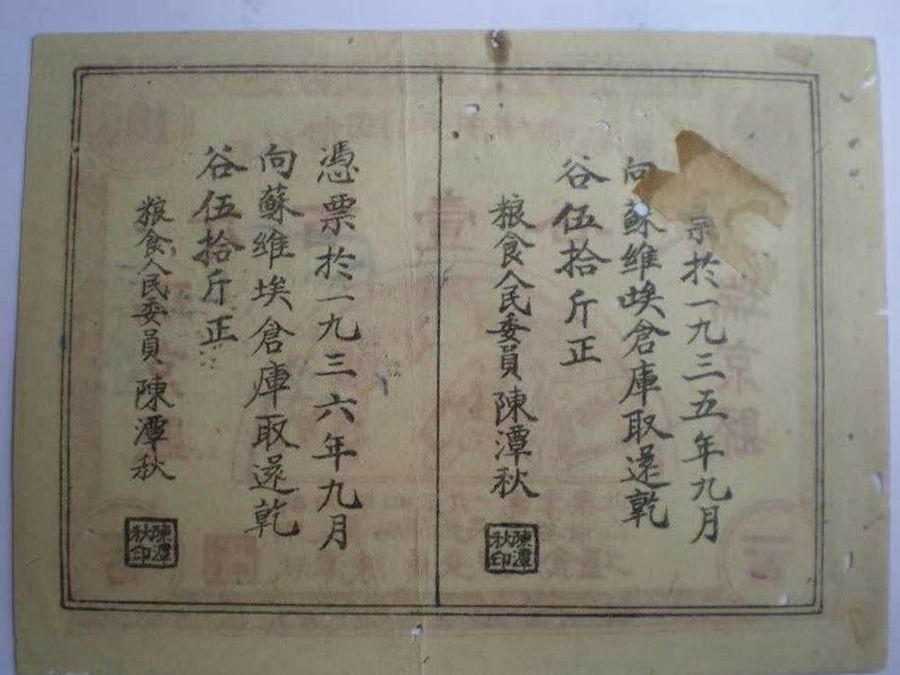 票於一九三五年九月
向蘇維埃倉庫取還乾
谷伍拾斤正
粮食人民委員陳潭秋
陳潭秋印
憑票於一九三六年九月
向蘇維埃倉庫取還乾
谷伍拾斤正
粮食人民委員陳潭秋
陳潭秋印
瑞京縣
壹